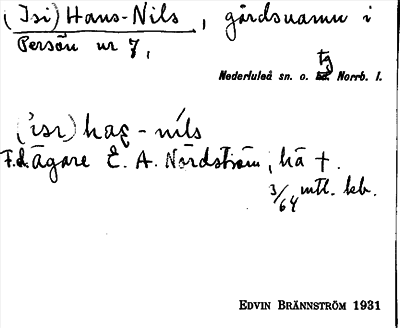 (Isi) Hans-Nils, gårdsnamn i
Persön nr 7,
tg
Nederluleå sn. o. hd. Norrb. l.
('ısr) haȩ-níls
F.d. ägare E. A. Nordström, hå †.
3/64 mtl. kb.
EDVIN BRÄNNSTRÖM 1931